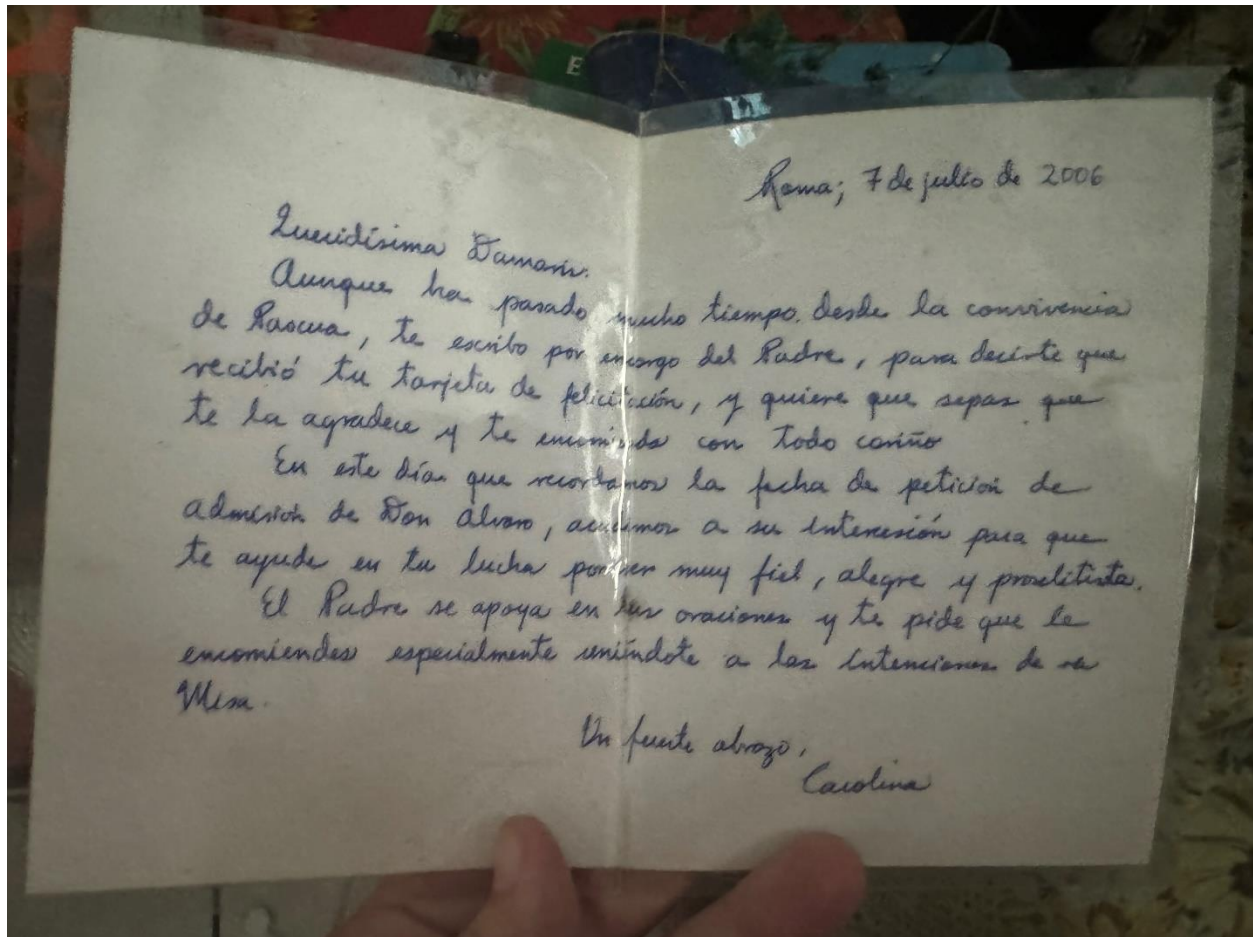 E
Roma; 7 de julio de 2006
Queridísima Damaris.
Aunque ha pasado mucho tiempo desde la convivencia
de Pascua, te escribo por encargo del Padre, para decirte que
recibió tu tarjeta de felicitación, y quiere que sepas que
te la agradece y te encomienda con todo cariño
En este día que recordamos la fecha de petición de
admisión de Don Álvaro, acudimos a su intercesión para que
te ayude en tu lucha por ser muy fiel, alegre y proselitista.
El Padre se apoya en tus oraciones y te pide que le
encomiendes especialmente uniéndote a las intenciones de su
Misa.
Un fuerte abrazo,
Carolina